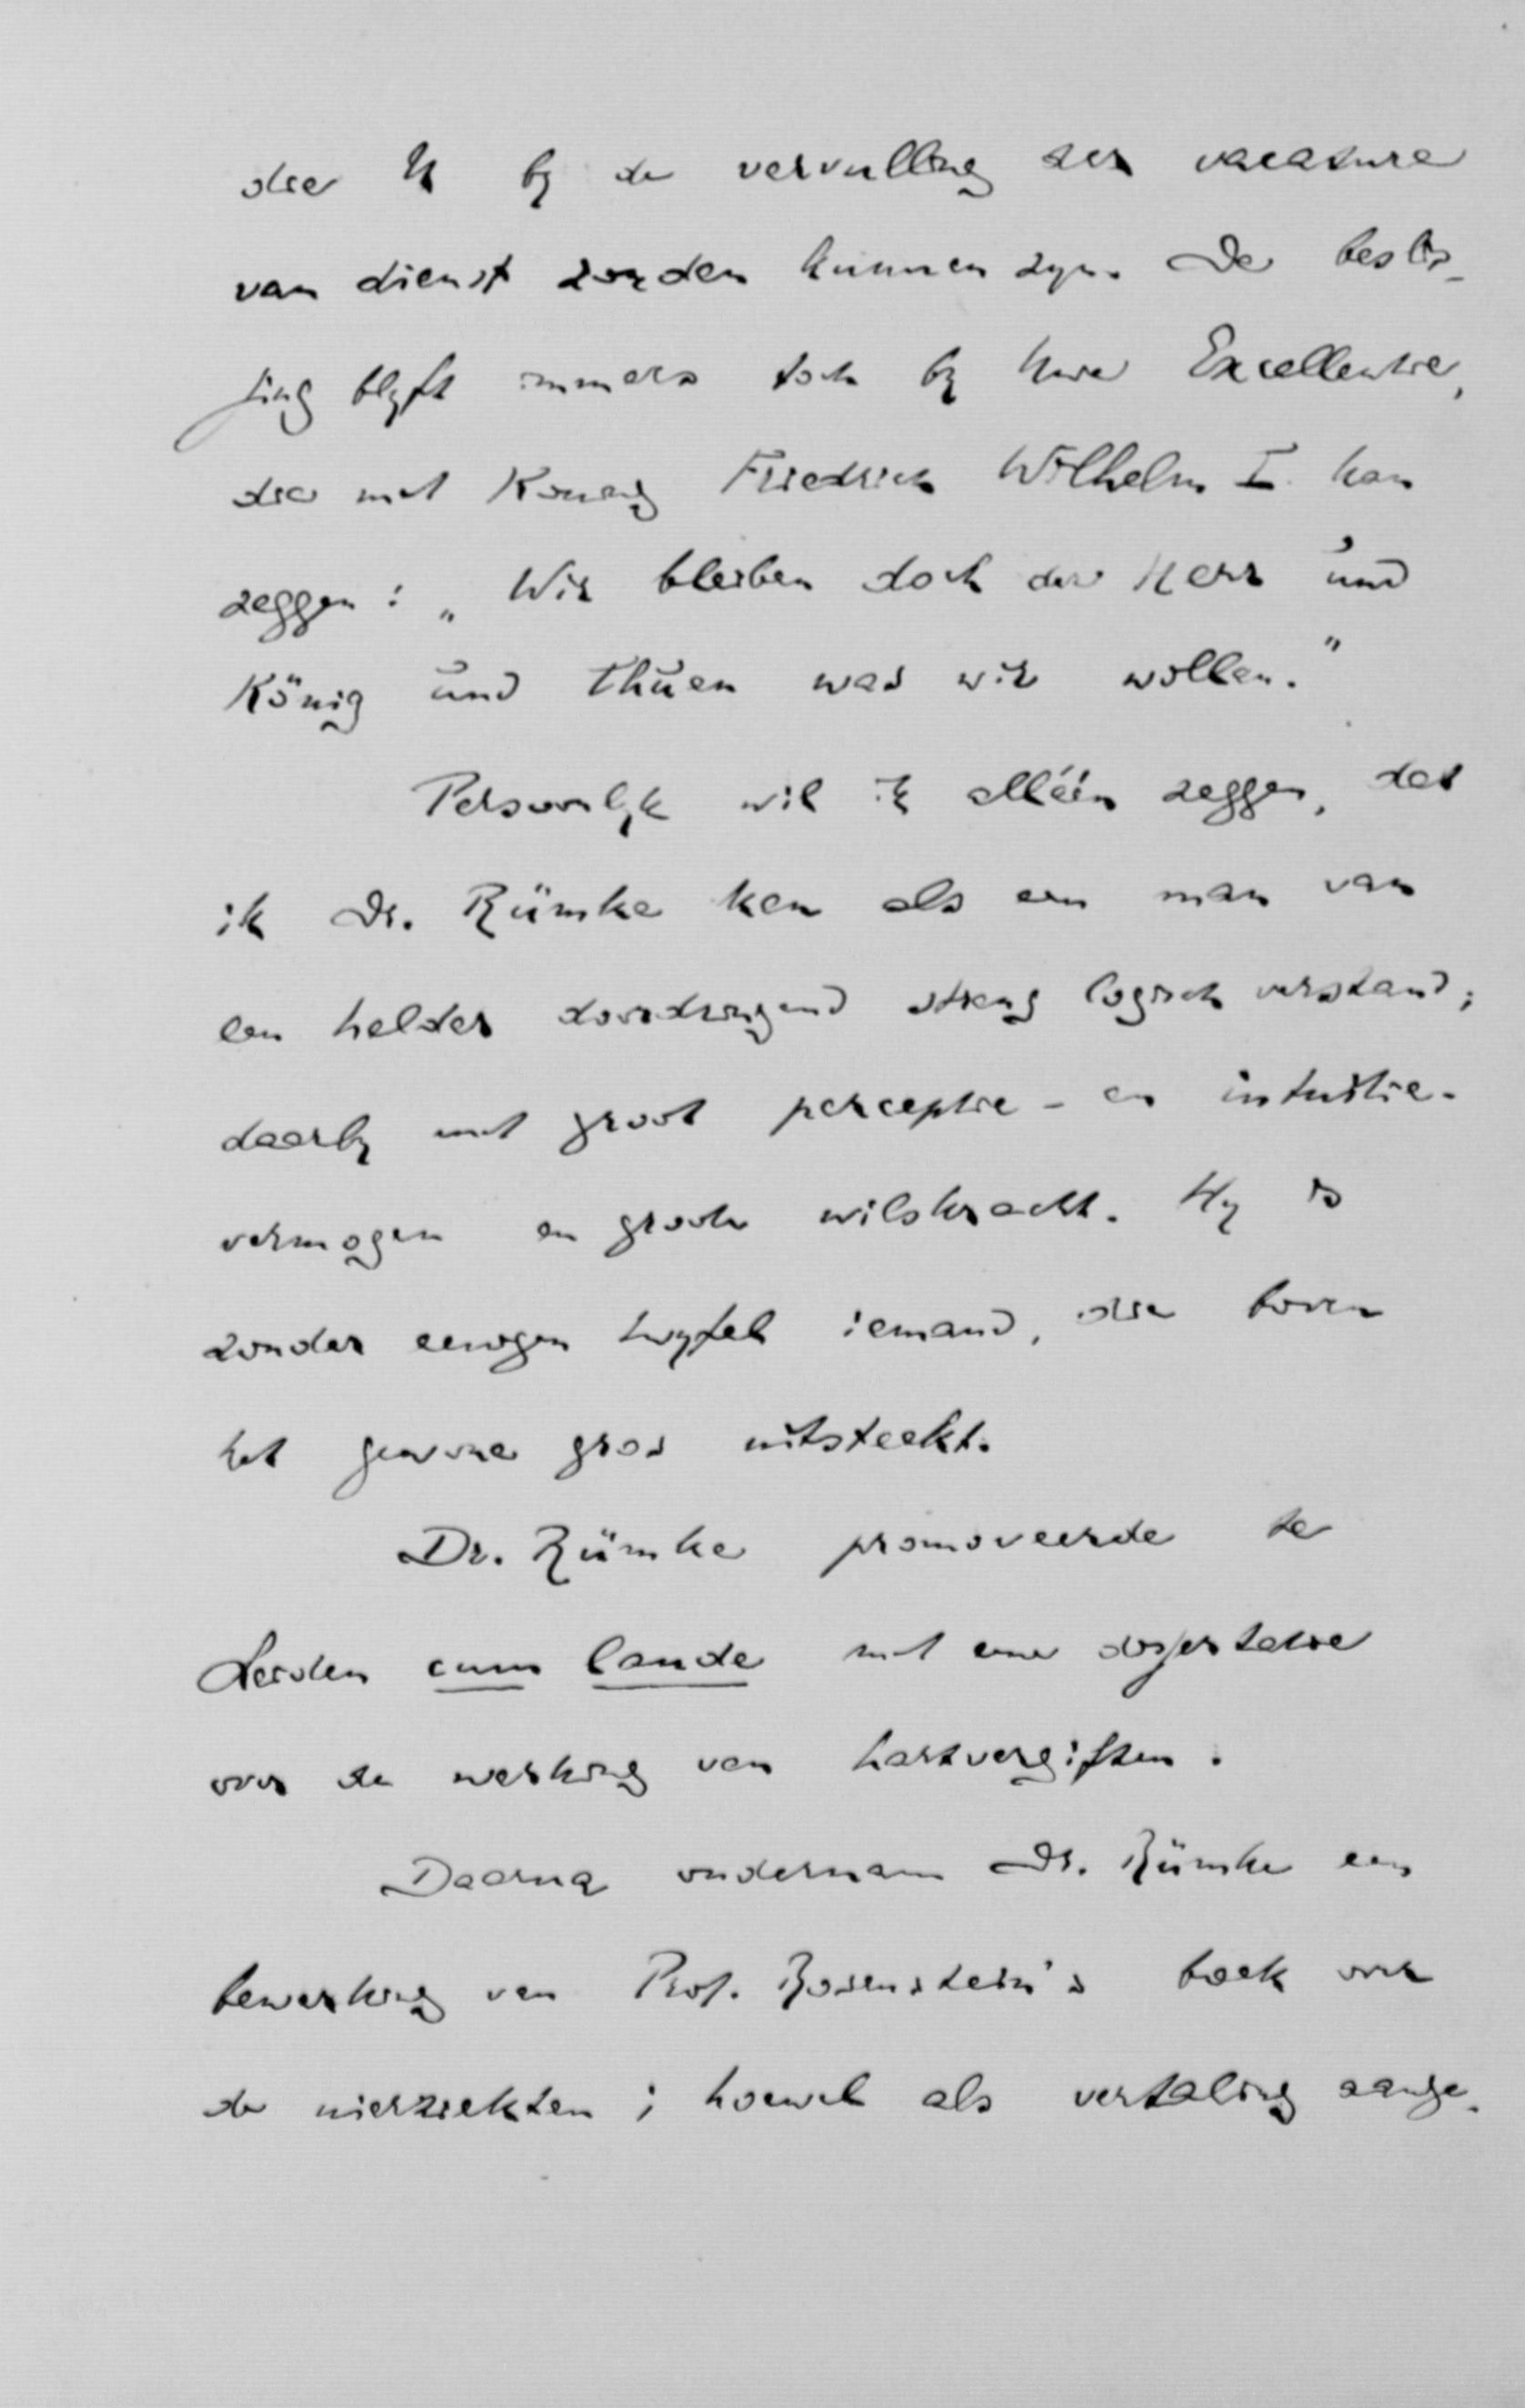 die U by de vervulling der vacature
van dienst zouden kunnen zyn. De beslis-
sing blyft immers toch by Uwe Excellentie,
die met Koning Friedrich Wilhelm I. kan
zeggen: „Wir bleiben doch der Herr und
König und thuen was wir wollen."
Persoonlyk wil ik alléén zeggen, dat
ik Dr. Rümke ken als een man van
een helder doordringend streng logisch verstand;
daarby met groot perceptie- en intuïtie-
vermogen en groote wilskracht. Hy is
zonder eenigen twyfel iemand, die boven
het gewone gros uitsteekt.
Dr. Rümke promoveerde te
Leiden cum laude met eene dissertatie
over de werking van hartvergiften.
Daarna ondernam Dr. Rümke een
bewerking van Prof. Rosenstein's boek over
de nierziekten; hoewel als vertaling aange-